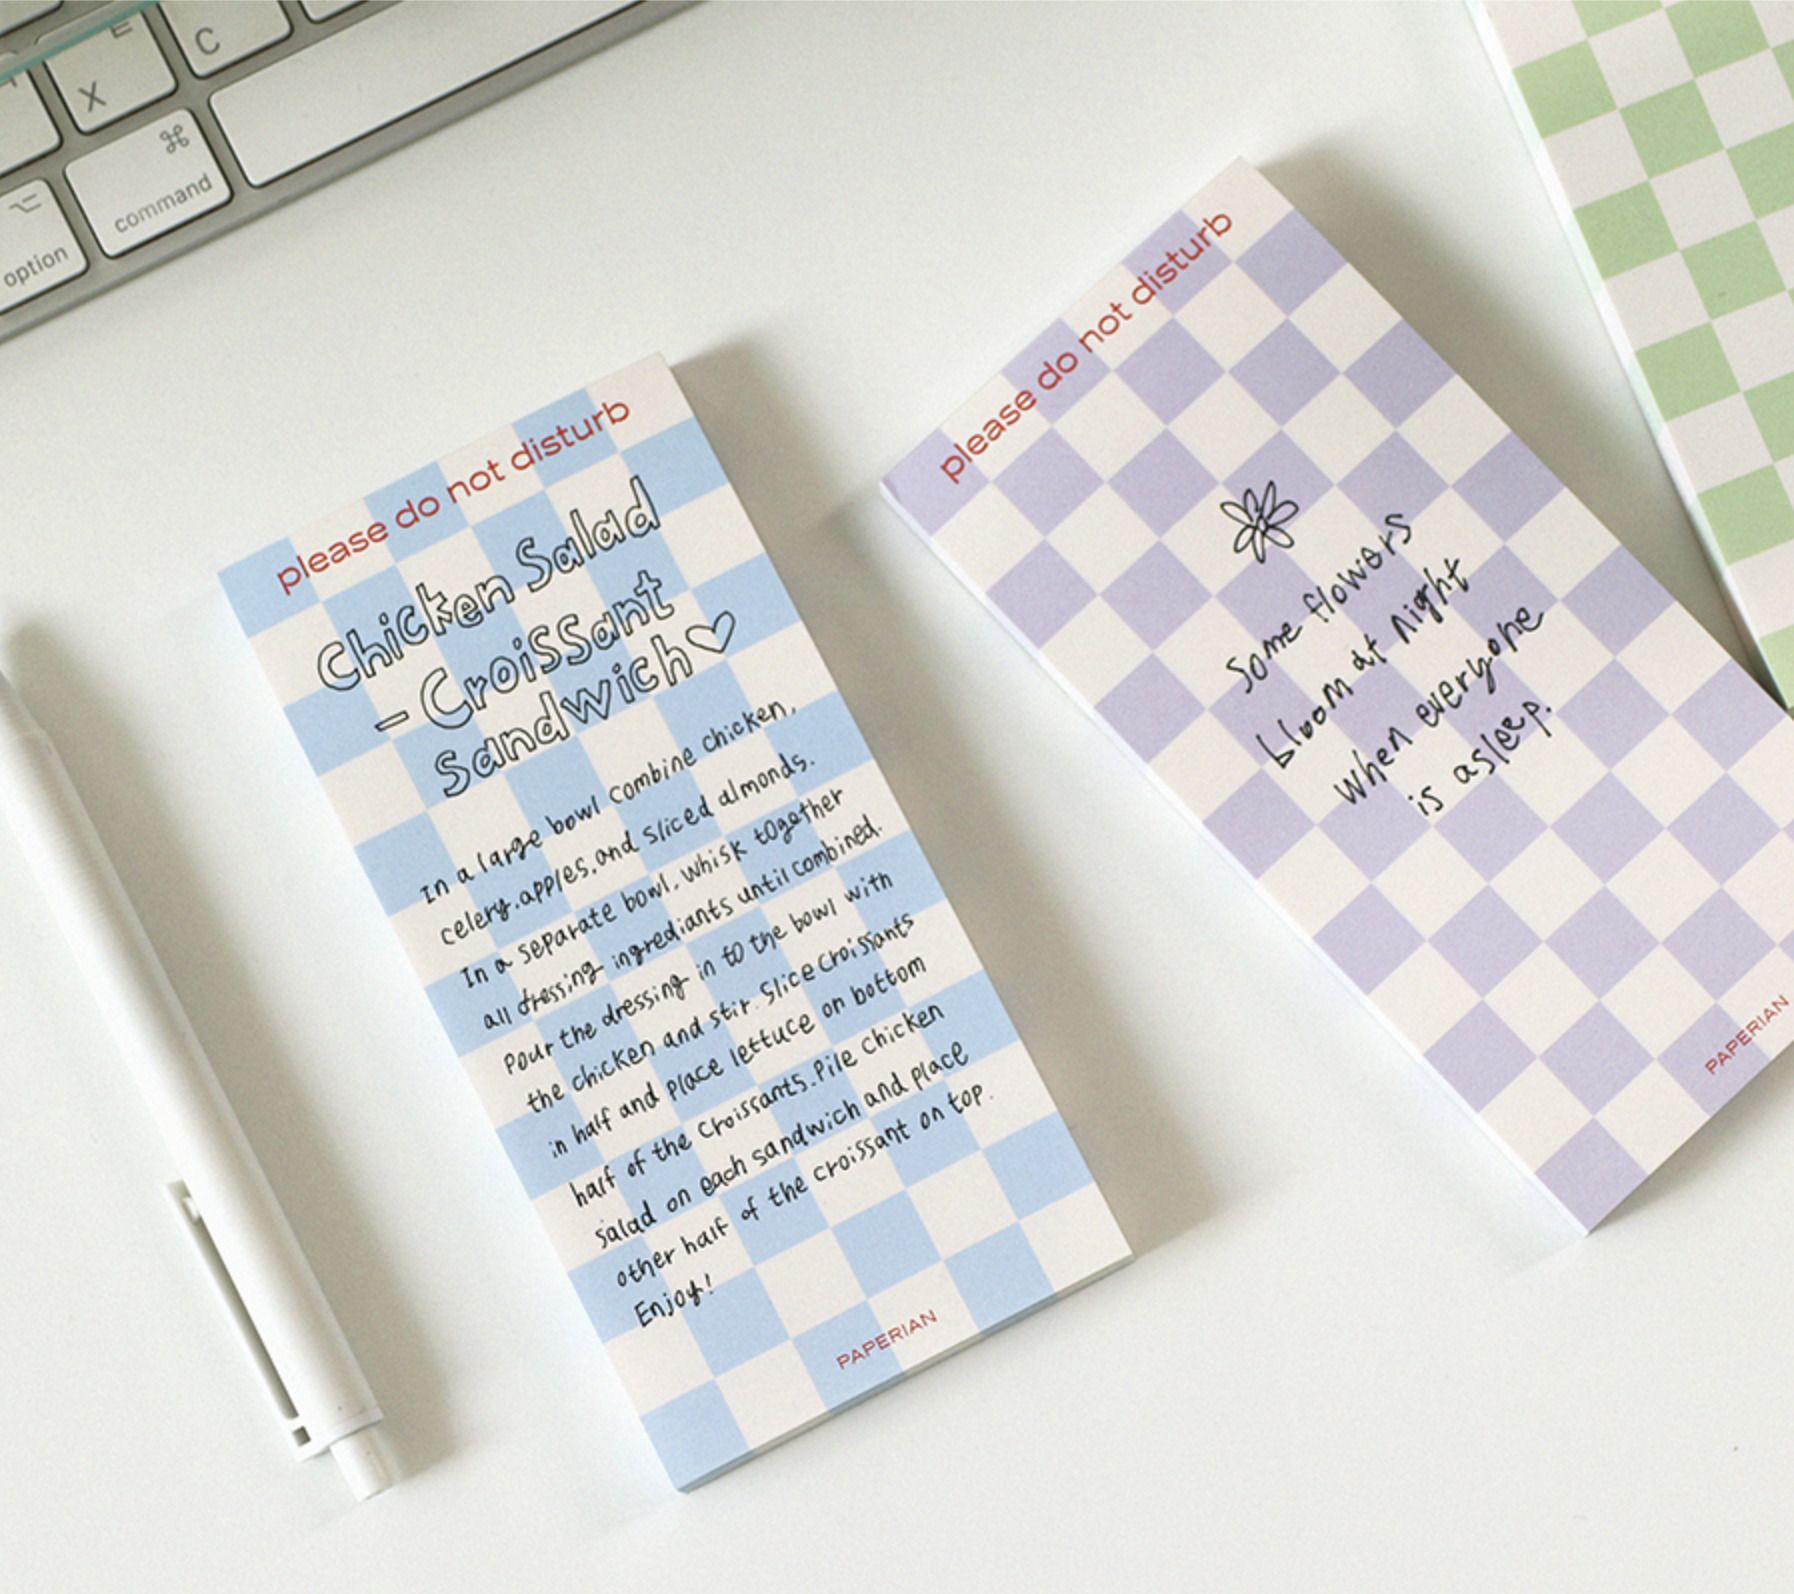 E
C
X
⌘
command
⌥
option
please do not disturb
Chicken Salad
- Croissant
Sandwich♡
In a large bowl combine chicken,
celery.apples.and sliced almonds.
In a separate bowl. whisk together
all dressing ingrediants until combined.
Pour the dressing in to the bowl with
the chicken and stir. Slice croissants
in half and place lettuce on bottom
half of the croissants.Pile chicken
salad on each sandwich and place
other half of the croissant on top.
Enjoy!
PAPERIAN
please do not disturb
Some flowers
bloom at night
When everyone
is asleep.
PAPERIAN